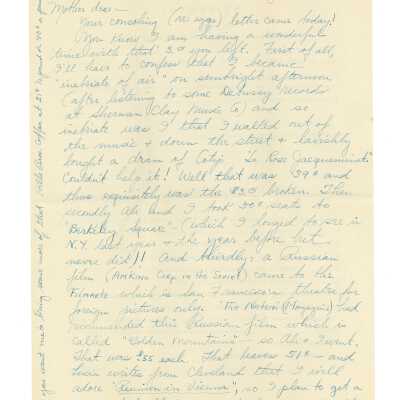 Mother dear—
Your consoling (no wops) letter came today!
You know I am having a wonderful
time with that 3.00 you left. First of all,
I'll have to confess that I became
"inebriate of air" on afternoon
(after listening to some Debussy records
at Sherman Clay Music Co) and so
inebriate was I that I walked out of
the music + down the street + lavishly
bought a dram of Coty's La Rose Jacqueminot.
Couldn't help it! Well that was 39¢ and
thus exquisitely was the $3.00 broken. Then
secondly Ah and I took 50¢ seats to
"Berkeley Square" (which I longed to see in
N.Y. last year + the year before but
never did)! And thirdly: a Russian
film (Amkino Corp in the Soviet) came to the
Filmarte which is San Francisco's theatre for
foreign pictures only. The Nation (Magazine) had
recommended this Russian film which is
called "Golden Mountains" — so Ah + I went.
That was 55 each. That leaves 51¢ — and
writes from Cleveland that I will
adore "Reunion in Vienna", so I plan to get a
you want me to bring some more of that Coffee at 21¢ a pound or